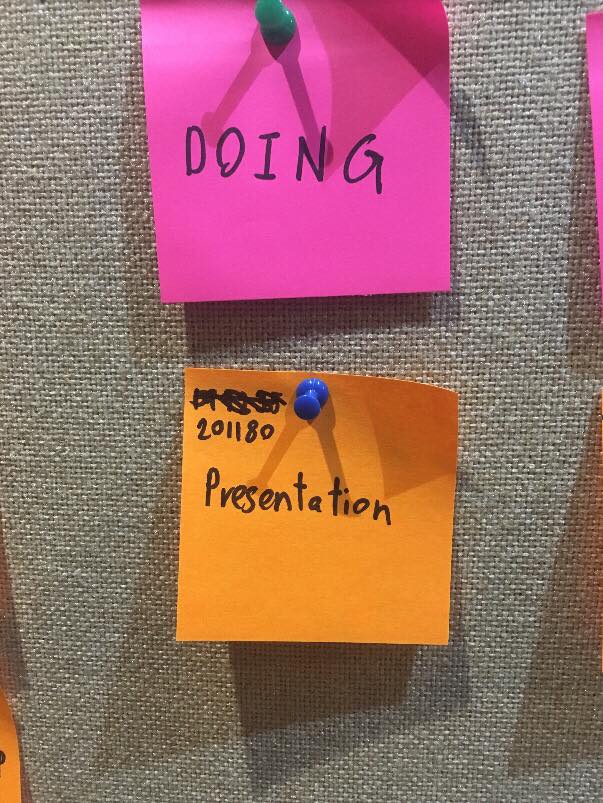 DOING
201180
Presentation